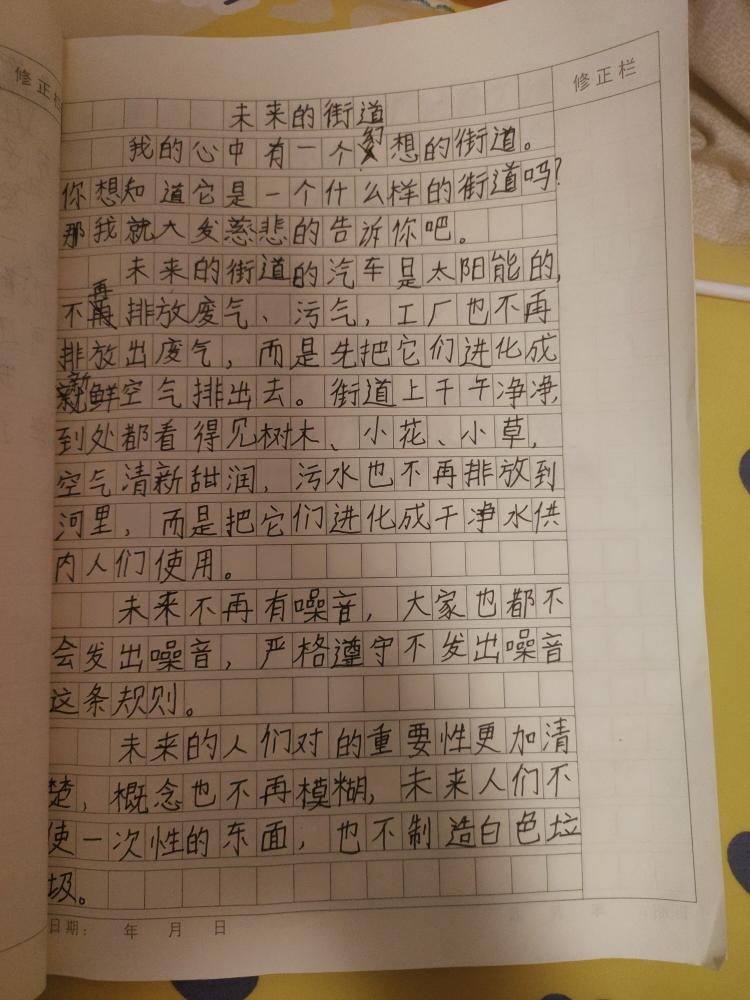 修正栏
修正栏
未来的街道
我的心中有一个幻想的街道。
你想知道它是一个什么样的街道吗?
那我就大发慈悲的告诉你吧。
未来的街道的汽车是太阳能的,
不再排放废气、污气,工厂也不再
排放出废气,而是先把它们进化成
新鲜空气排出去。街道上干午净净,
到处都看得见树木、小花、小草,
空气清新甜润,污水也不再排放到
河里,而是把它们进化成干净水供
内人们使用。
未来不再有噪音,大家也都不
会发出噪音,严格遵守不发出噪音
这条规则。
未来的人们对的重要性更加清
楚,概念也不再模糊,未来人们不
使一次性的东面,也不制造白色垃
圾。
日期: 年 月 日